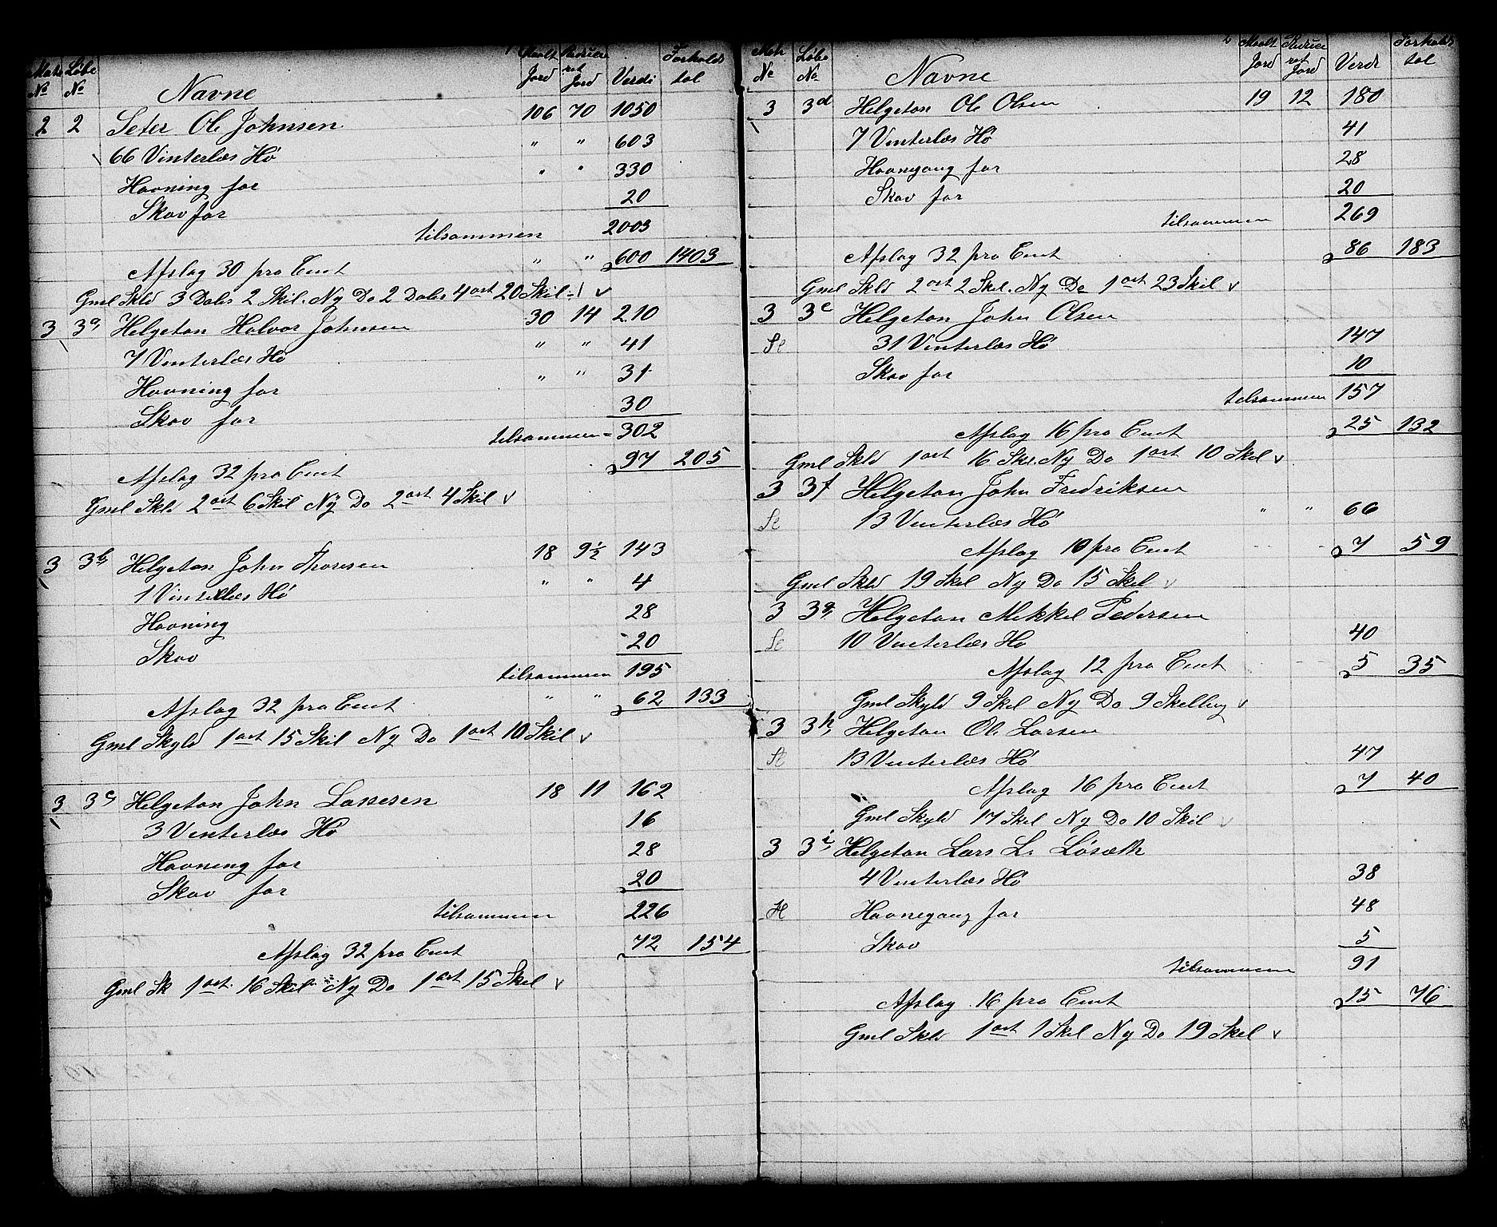 Matr No Løbe No Navne Maalt Jord Reduceret Jord Verdi Forholdstal
2 2 Seter Ole Johnsen 106 70 1050
66 Vinterlæs Hø " " 603
Havning for " " 330
Skov for 20
tilsammen 2003
Afslag 30 pro Cent " " 600 1403
Gml Skld 3 Daler 2 Skil. Ny Do 2 Daler 4 ort 20 Skil
3 3a Helgeton Halvor Johnsen 30 14 210
7 Vinterlæs Hø " " 41
Havning for " " 31
Skov for 30
tilsammen 302
Afslag 32 pro Cent 97 205
Gml Skld 2 ort 6 Skil Ny Do 2 ort 4 Skil
3 3b Helgeton John Thoresen 18 9½ 143
1 Vinterlæs Hø " " 4
Havning 28
Skov 20
tilsammen 195
Afslag 32 pro Cent " " 62 133
Gml Skyld 1 ort 15 Skil Ny Do 1 ort 10 Skil
3 3c Helgeton John Lassesen 18 11 162
3 Vinterlæs Hø 16
Havning for 28
Skov for 20
tilsammen 226
Afslag 32 pro Cent 72 154
Gml Sk 1 ort 16 Skil Ny Do 1 ort 15 Skil
2
Matr No Løbe No Navne Maalt Jord Reduceret Jord Verdi Forholdstal
3 3d Helgeton Ole Olsen 19 12 180
7 Vinterlæs Hø 41
Havnegang for 28
Skov for 20
tilsammen 269
Afslag 32 pro Cent 86 183
Gml Skld 2 ort 2 Skil. Ny Do 1 ort 23 Skil
3 3e Helgeton John Olsen
31 Vinterlæs Hø 147
Skov for 10
tilsammen 157
Afslag 16 pro Cent 25 132
Gml Skld 1 ort 16 Skl Ny Do 1 ort 10 Skil
3 3f Helgeton John Fredriksen
13 Vinterlæs Hø " " 66
Afslag 10 pro Cent 7 59
Gml Skld 19 Skil Ny Do 15 Skil
3 3g Helgeton Mikkel Pedersen
10 Vinterlæs Hø 40
Afslag 12 pro Cent 5 35
Gml Skyld 9 Skil Ny Do 9 Skelling
3 3h Helgeton Ole Larsen
13 Vinterlæs Hø 47
Afslag 16 pro Cent 7 40
Gml Skyld 17 Skil Ny Do 10 Skil
3 3i Helgeton Lars L. Løsæth
4 Vinterlæs Hø 38
Havnegang for 48
Skov 5
tilsammen 91
Afslag 16 pro Cent 15 76
Gml Skld 1 ort 1 Skil Ny Do 19 Skil